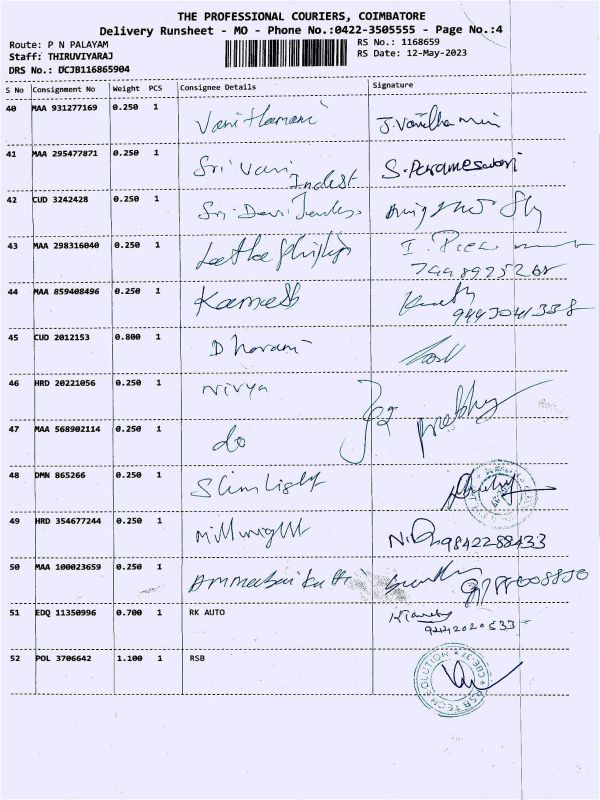 THE PROFESSIONAL COURIERS, COIMBATORE
Delivery Runsheet - MO - Phone No.:0422-3505555 - Page No.:4
Route: P N PALAYAM
RS No.: 1168659
Staff: THIRUVIYARAJ
RS Date: 12-May-2023
DRS No.: DCJB116865904
S No Consignment No Weight PCS Consignee Details Signature
40 MAA 931277169 0.250 1 Vanithamani J. Vanitha mani
41 MAA 295477871 0.250 1 Sri Vari Indest S. Parameswari
42 CUD 3242428 0.250 1 Sri Devi
43 MAA 298316040 0.250 1
44 MAA 859408496 0.250 1 Kamesh
9443041338
45 CUD 2012153 0.800 1 Dharani
46 HRD 20221056 0.250 1 Nivya
47 MAA 568902114 0.250 1 do
48 DMN 865266 0.250 1 Slim Light
49 HRD 354677244 0.250 1 Millwright 9842288433
50 MAA 100023659 0.250 1
51 EDQ 11350996 0.700 1 RK AUTO
9442020533
52 POL 3706642 1.100 1 RSB